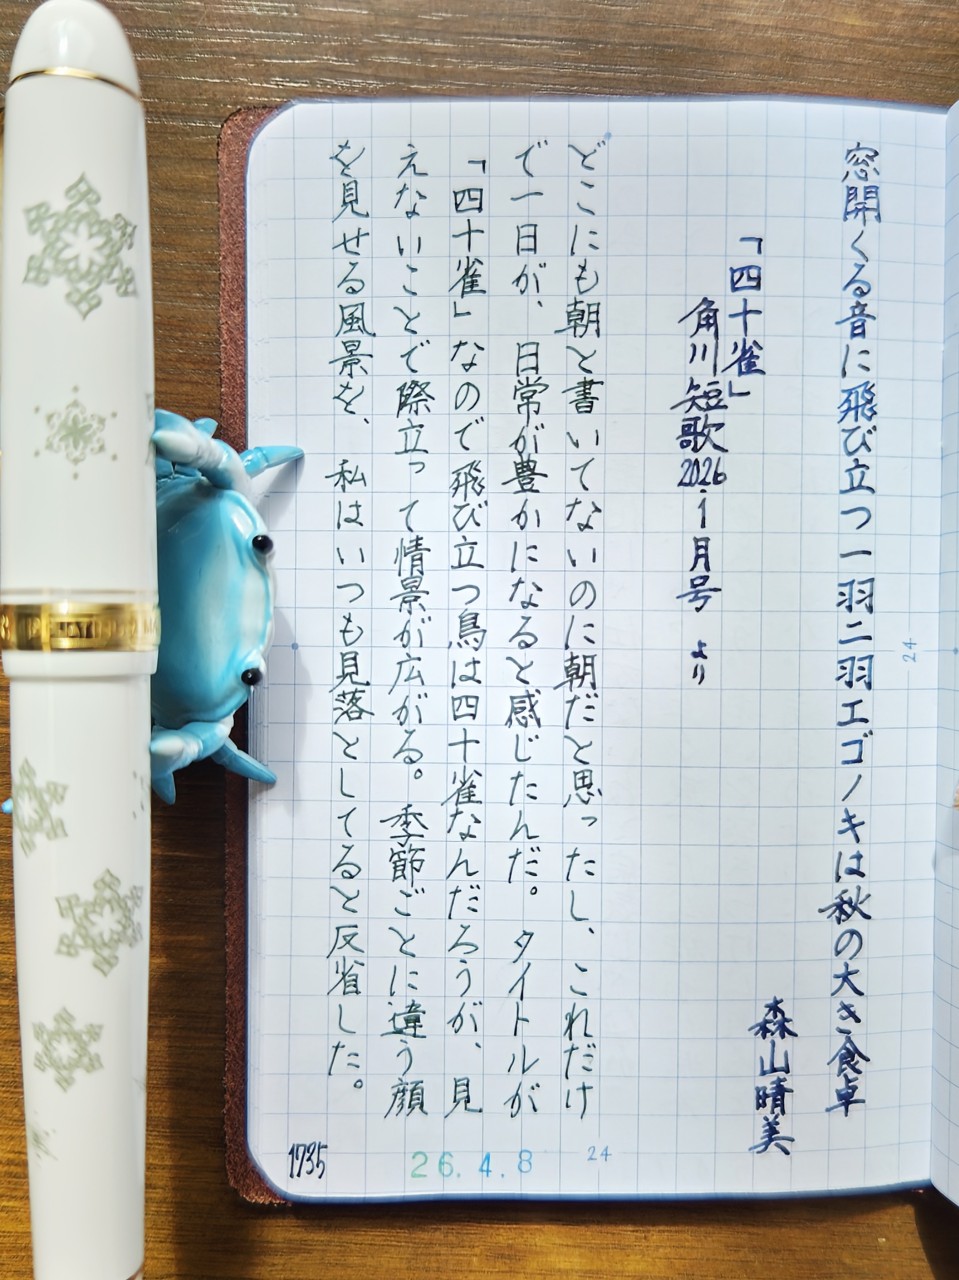 窓開くる音に飛び立つ一羽二羽エゴノキは秋の大き食卓
森山晴美
「四十雀」
角川短歌2026.1月号 より
どこにも朝と書いてないのに朝だと思ったし、これだけ
で一日が、日常が豊かになると感じたんだ。タイトルが
「四十雀」なので飛び立つ鳥は四十雀なんだろうが、見
えないことで際立って情景が広がる。季節ごとに違う顔
を見せる風景を、私はいつも見落としてると反省した。
1735
26.4.8
24
24